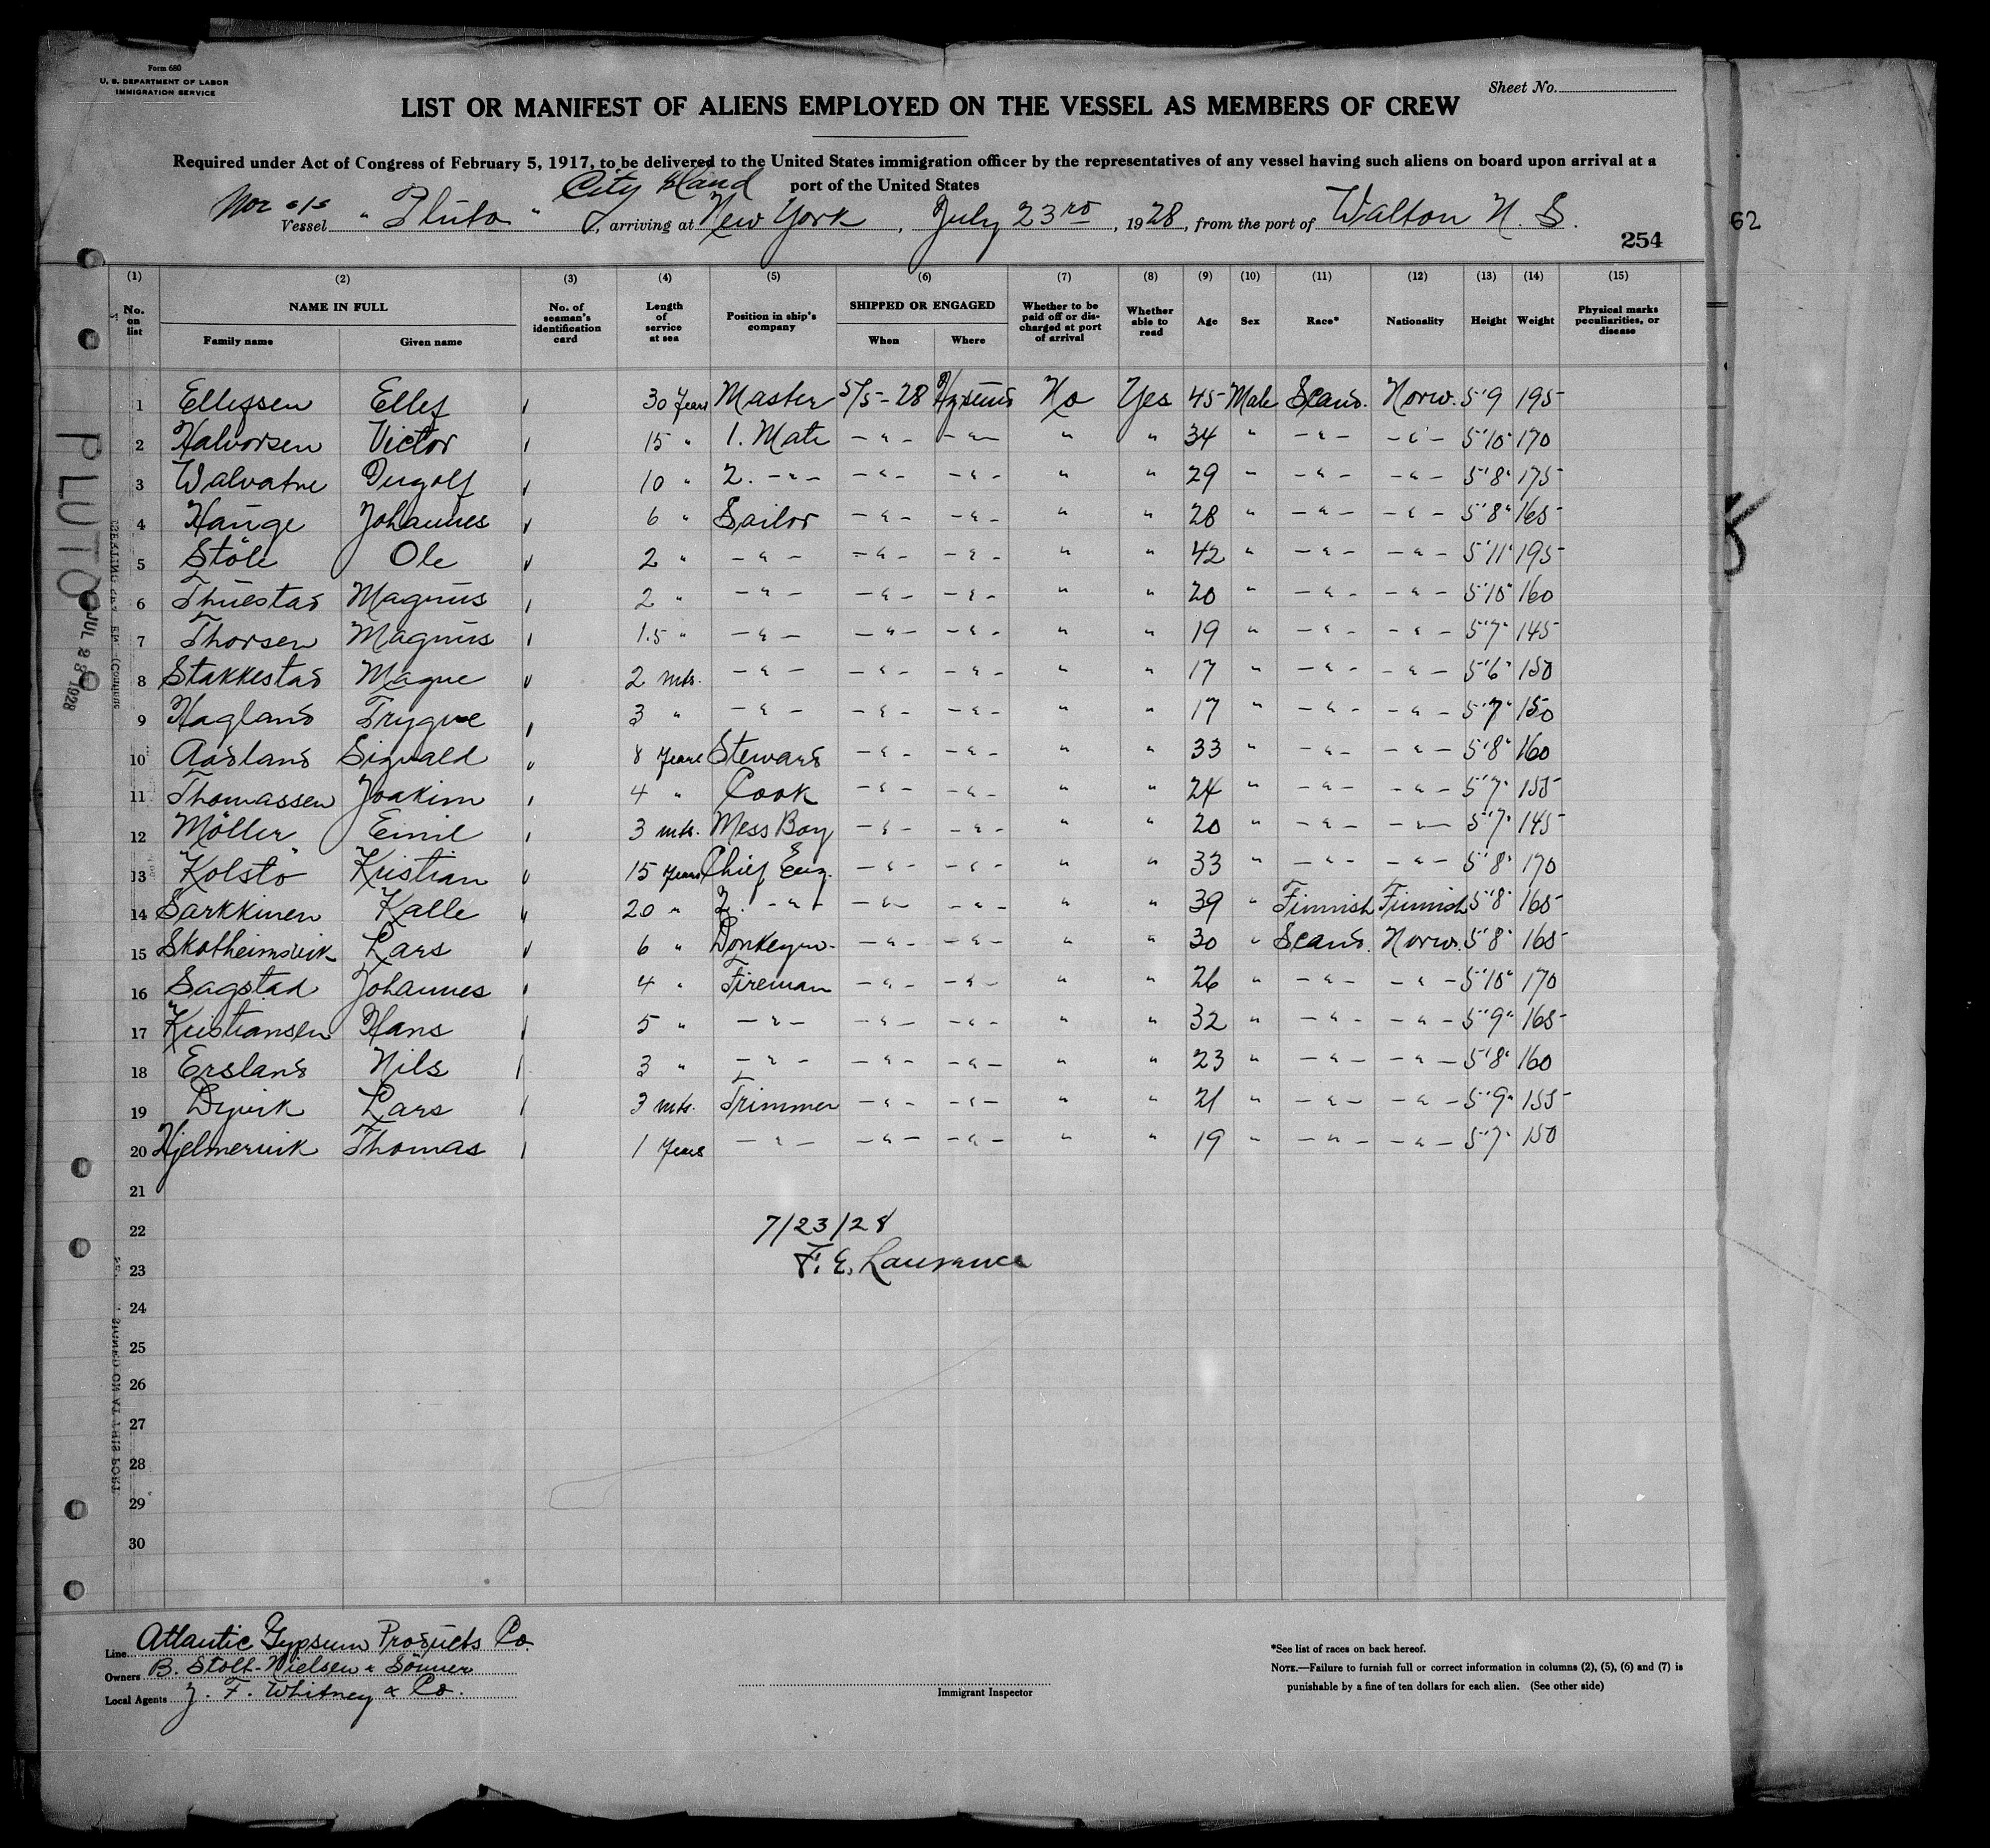 Form 680
U. S. DEPARTMENT OF LABOR
IMMIGRATION SERVICE
Sheet No.
LIST OR MANIFEST OF ALIENS EMPLOYED ON THE VESSEL AS MEMBERS OF CREW
Required under Act of Congress of February 5, 1917, to be delivered to the United States immigration officer by the representatives of any vessel having such aliens on board upon arrival at a
port of the United States
City Island
Nor s/s Vessel "Pluto", arriving at New York, July 23rd, 1928, from the port of Walton N. S.
254
62
(1) (2) (3) (4) (5) (6) (7) (8) (9) (10) (11) (12) (13) (14) (15)
No. on list NAME IN FULL Family name Given name No. of seaman's identification card Length of service at sea Position in ship's company SHIPPED OR ENGAGED When Where Whether to be paid off or discharged at port of arrival Whether able to read Age Sex Race* Nationality Height Weight Physical marks peculiarities, or disease
1 Ellefsen Ellef 30 Years Master 5/5-28 No Yes 45 Male Scand. Norw. 5'9 195
2 Halvorsen Victor 15 " 1. Mate -"- -"- " " 34 " -"- -"- 5'10" 170
3 Walvatne Ingolf 10 " 2. -"- -"- -"- " " 29 " -"- -"- 5'8" 175
4 Hauge Johannes 6 " Sailor -"- -"- " " 28 " -"- -"- 5'8" 165
5 Stöle Ole 2 " -"- -"- -"- " " 42 " -"- -"- 5'11" 195
6 Thuestad Magnus 2 " -"- -"- -"- " " 20 " -"- -"- 5'10" 160
7 Thorsen Magnus 1.5 " -"- -"- -"- " " 19 " -"- -"- 5'7" 145
8 Stakkestad Magne 2 mts. -"- -"- -"- " " 17 " -"- -"- 5'6" 150
9 Hagland Trygve 3 " -"- -"- -"- " " 17 " -"- -"- 5'7" 150
10 Aasland Sigvald 8 Years Steward -"- -"- " " 33 " -"- -"- 5'8" 160
11 Thomassen Joakim 4 " Cook -"- -"- " " 24 " -"- -"- 5'7" 155
12 Möller Emil 3 mts. Mess Boy -"- -"- " " 20 " -"- -"- 5'7" 145
13 Kolstö Kristian 15 Years Chief Eng. -"- -"- " " 33 " -"- -"- 5'8" 170
14 Sarkkinen Kalle 20 " 2. -"- -"- -"- " " 39 " Finnish Finnish 5'8" 165
15 Skotheimsvik Lars 6 " Donkeym. -"- -"- " " 30 " Scand. Norw. 5'8" 165
16 Sagstad Johannes 4 " Fireman -"- -"- " " 26 " -"- -"- 5'10" 170
17 Kristiansen Hans 5 " -"- -"- -"- " " 32 " -"- -"- 5'9" 165
18 Ersland Nils 3 " -"- -"- -"- " " 23 " -"- -"- 5'8" 160
19 Dyvik Lars 3 mts. Trimmer -"- -"- " " 21 " -"- -"- 5'9" 155
20 Hjelmervik Thomas 1 Years -"- -"- -"- " " 19 " -"- -"- 5'7" 150
21
22 7/23/28
23 F. E. Lawrence
24
25
26
27
28
29
30
PLUTO
JUL 23 1928
Line Atlantic Gypsum Products Co.
Owners B. Stolt-Nielsen & Sönner
Local Agents J. F. Whitney & Co.
Immigrant Inspector
*See list of races on back hereof.
NOTE.—Failure to furnish full or correct information in columns (2), (5), (6) and (7) is
punishable by a fine of ten dollars for each alien. (See other side)